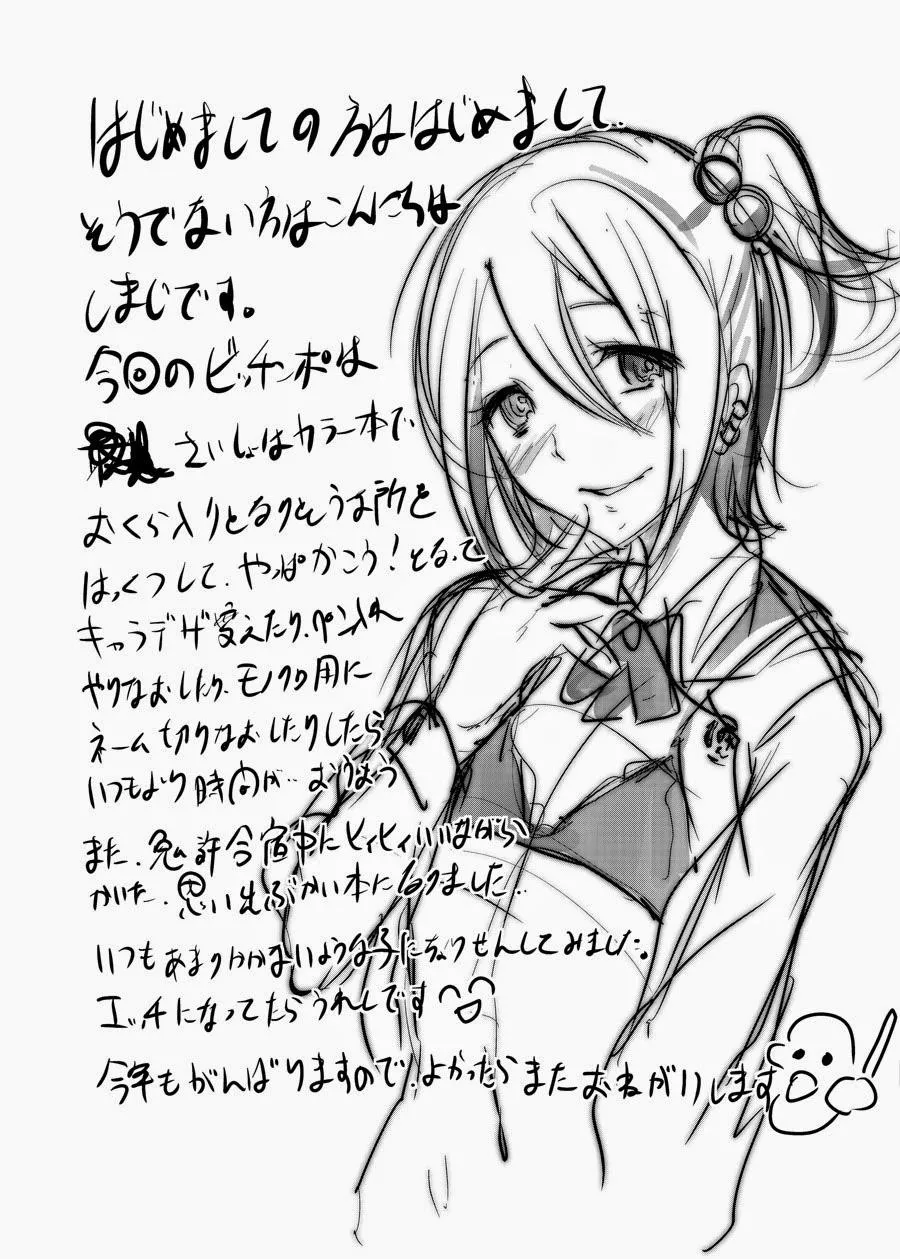 はじめましての方ははじめまして。
そうでない方はこんにちは
しまじです。
今回のビッチンポは
さいしょはカラー本で
おくら入りとなりそうな所を
はっくつして、やっぱかこう!となって
キャラデザ変えたり、ペン入れ
やりなおしたり、モノクロ用に
ネーム切りなおしたりしたら
いつもより時間が‥
また、免許合宿中にヒィヒィいいながら
かいた、思い出ぶかい本になりました‥
いつもあまりかかないような子にちょうせんしてみました。
エッチになってたらうれしいです
今年もがんばりますので、よかったらまたおねがいします